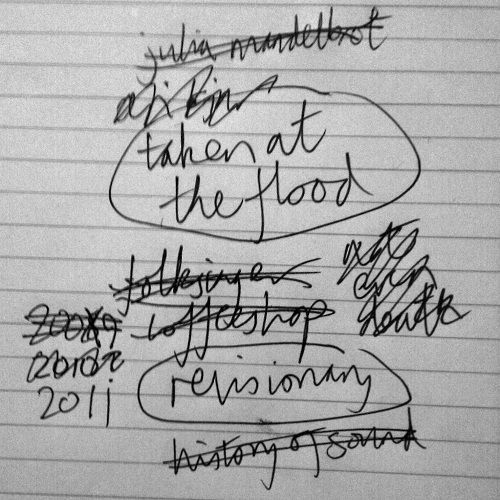 julia mandelbrot
taken at
the flood
folksinger
coffeeshop
2011
revisionary
history of sound